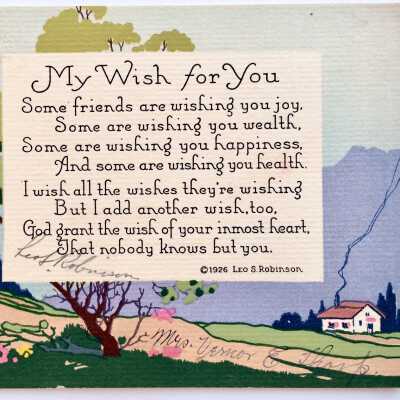 My Wish for You
Some friends are wishing you joy,
Some are wishing you wealth,
Some are wishing you happiness,
And some are wishing you health.
I wish all the wishes they're wishing
But I add another wish, too,
God grant the wish of your inmost heart,
That nobody knows but you.
©1926 Leo S. Robinson
Leo S. Robinson
Mrs. Vernor E.